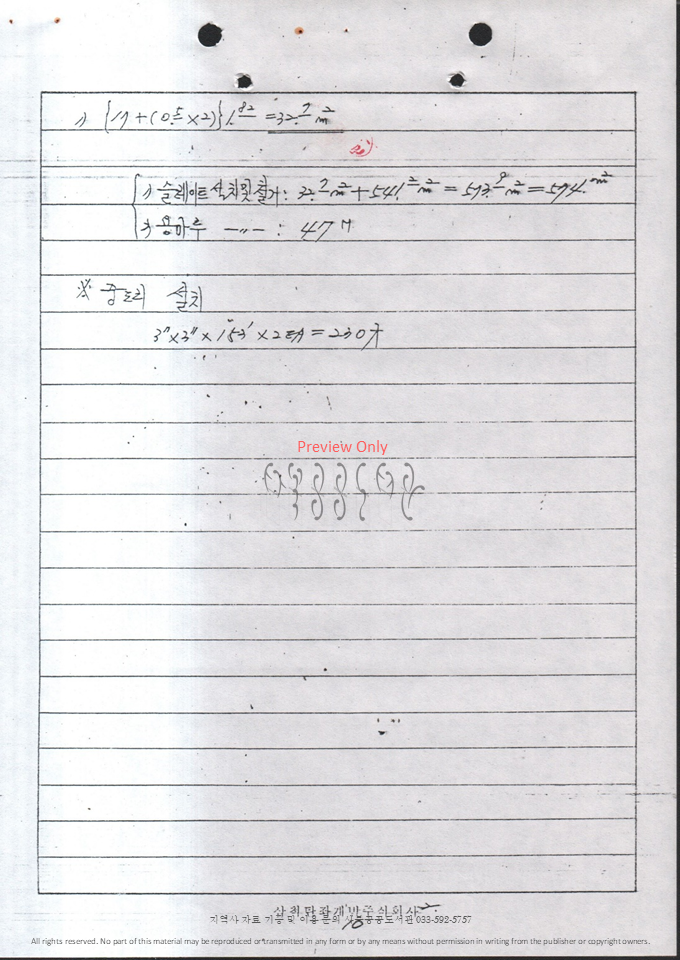 1) {17+(0.5×2)}1.82 = 32.7 m²
1) 슬레이트 설치 및 철거 : 32.7 m² + 541.2 m² = 573.9 m² = 574. m²
2) 용마루 —〃— : 47 M
※ 중도리 설치
3"×3"× ×2EA = 230才
Preview Only
삼척탄좌개발주식회사
지역사 자료 기증 및 이용 문의 사북공공도서관 033-592-5757
10
All rights reserved. No part of this material may be reproduced or transmitted in any form or by any means without permission in writing from the publisher or copyright owners.